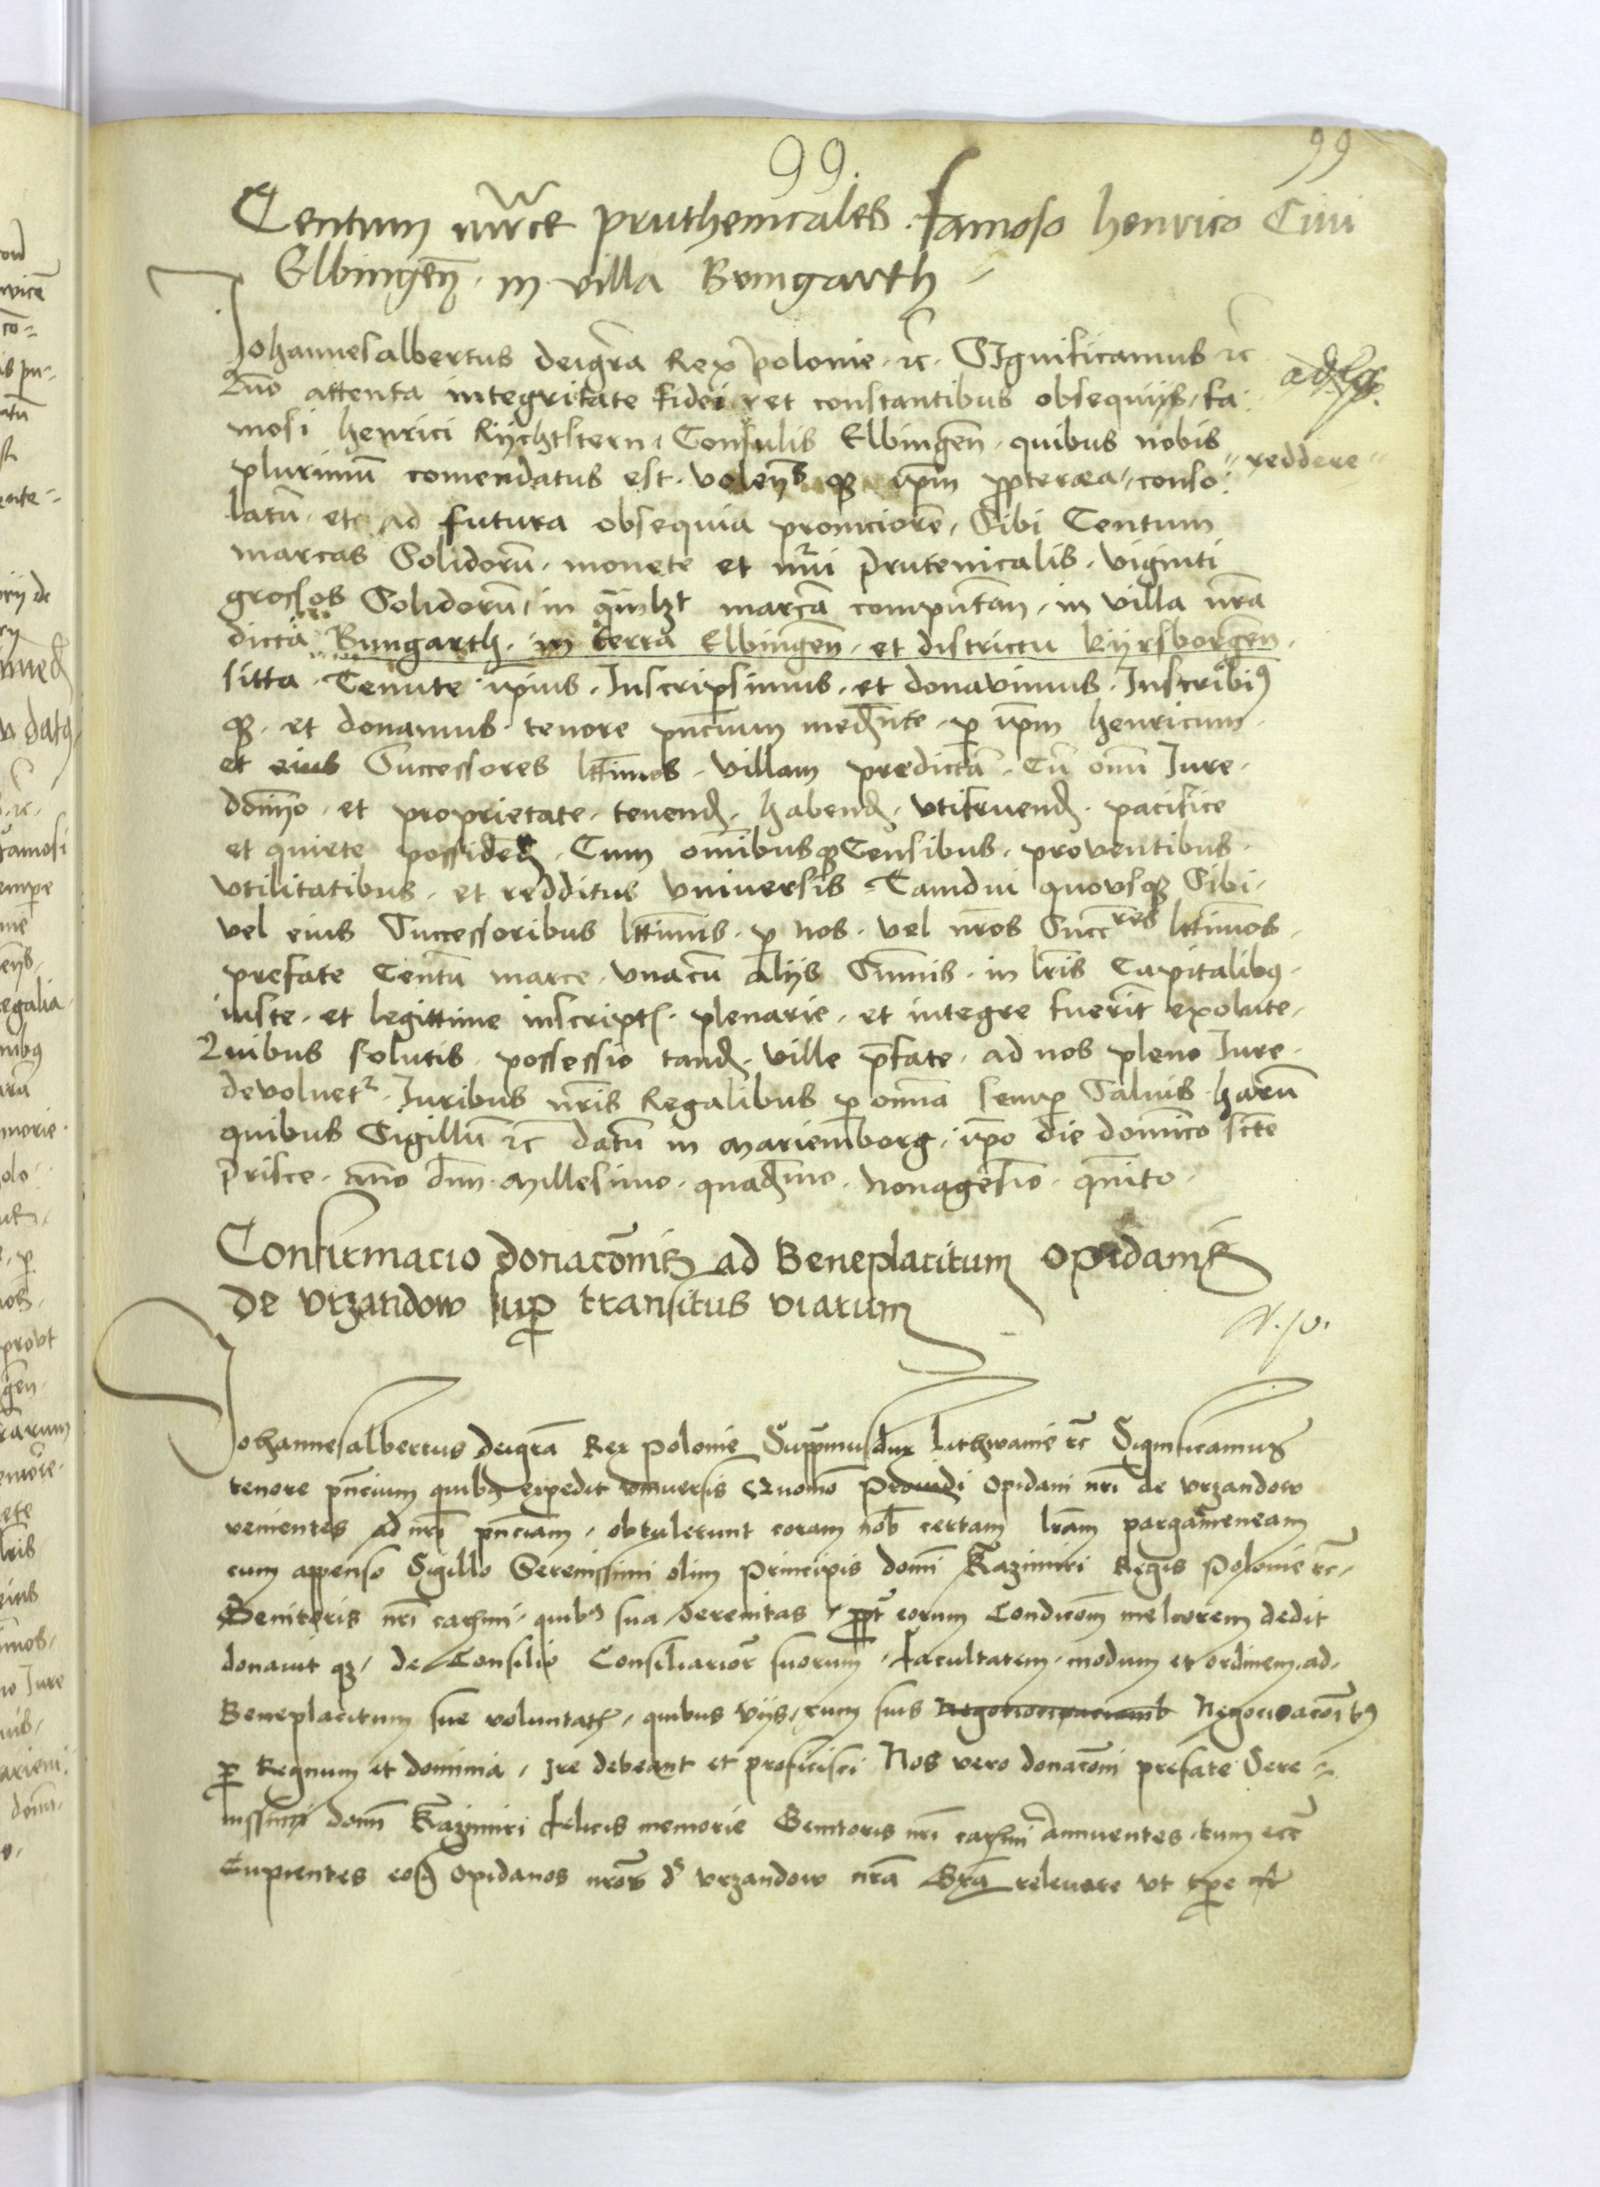 99.
99
Centum mrce pruthenicales famoso henrico Ciui
Elbingen in villa Bomgarth
Johannesalbertus deigra Rex polonie rc Significamus rc
Quo attenta integritate fidei et constantibus obsequijs fa
mosi henrici Rychtstern Consulis Elbingen quibus nobis
plurimu comendatus est volens qz ipm ppterea conso
reddere
latu et ad futura obsequia promciore Sibi Centum
marcas Solidoru monete et nri prutenicalis viginti
grossos Solidoru in qmlzt marca computan in villa nra
dicta Bungarth in terra Elbingen et districtu kyrsborgen
sitta Tenute ipius Inscripsimus et donavimus Inscribi9
qz et donamus tenore pncium mediante p ipm henricum
et eius Successores lttimos villam predicta Cu omi Jure
domio et proprietate tenend habend vtifruend pacifice
et quiete possided Cum omibusqz Censibus proventibus
vtilitatibus et redditus vniversis Tamdiu quousqz Sibi
vel eius Successoribus lttimis p nos vel nros Succres lttimos
prefate Centu marce vnacu alijs Summis in lris Capitalibus
iuste et legittime inscript plenarie et integre fuerit exolute
Quibus solutis possessio tand ville pfate ad nos pleno Jure
devoluetr Juribus nris Regalibus p omia semp Saluis haru
quibus Sigillu rc datu in mariemborg ipo die domico scte
prisce ano dni millesimo quadmo nonagesio qnito
Confirmacio donacomis ad Beneplacitum opidanis
de vrzandow sup transitus viarum
Johannesalbertus deigra Rex polonie Suppmusdux lithwanie rc Significamus
tenore pncium quibus expedit vniuersis Quomo Pdi opidani nri de vrzandow
venientes ad nri pnciam obtulerunt coram nob certam lram pargameneam
cum appenso Sigillo Serenissimi olim principis domi Kazimiri Regis Polonie rc
Genitoris nri carsmi quib9 sua Serenitas ppt eorum Condicom meliorem dedit
donauit qz de Consilio Consiliarior suorum facultatem modum et ordinem ad
Beneplacitum sue voluntat quibus vijs cum suis Negociacoib9
p Regnum et dominia ire debeant et proficisci Nos vero donacomi prefate Sere
nissimi domi Kazimiri felicis memorie Genitoris nri carsmi Annuentes tum ecc
Cupientes eosd opidanos nros de vrzandow nra Gra relevare vt tpe